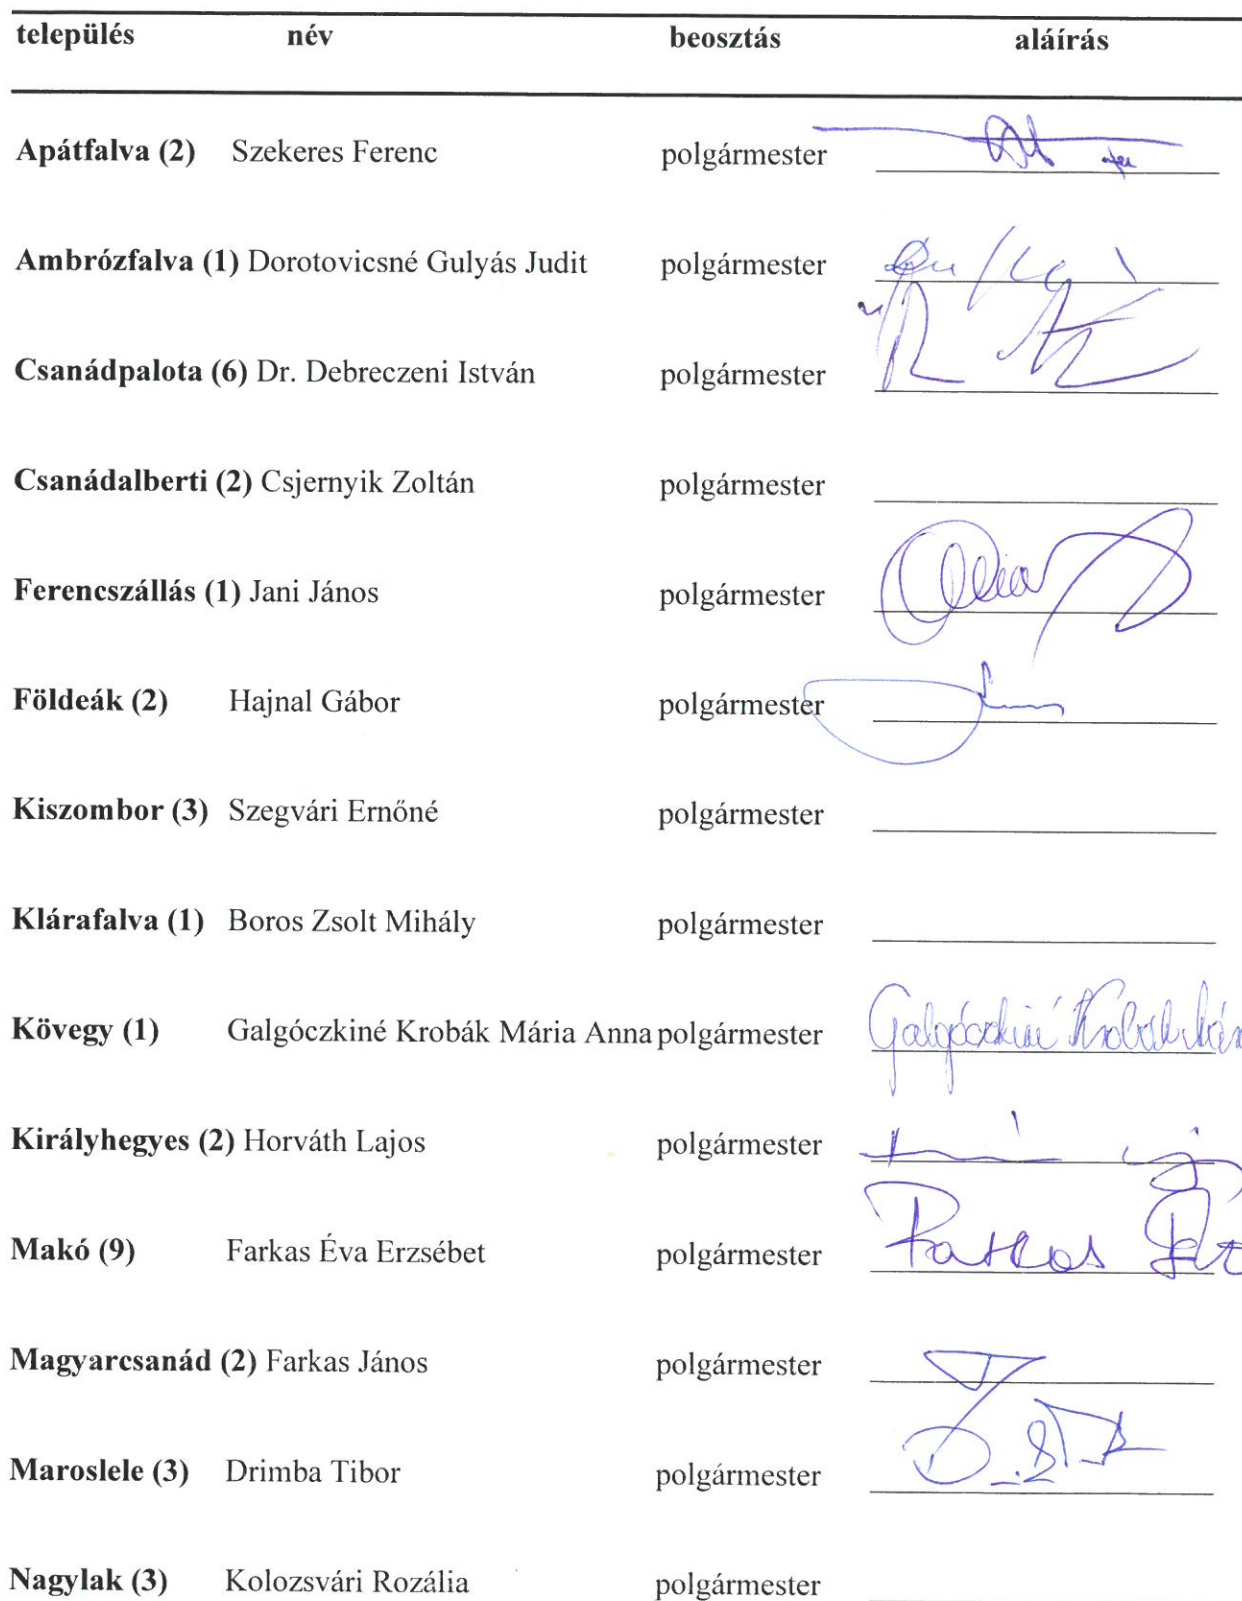 település név beosztás aláírás
Apátfalva (2) Szekeres Ferenc polgármester
Ambrózfalva (1) Dorotovicsné Gulyás Judit polgármester
Csanádpalota (6) Dr. Debreczeni István polgármester
Csanádalberti (2) Csjernyik Zoltán polgármester
Ferencszállás (1) Jani János polgármester
Földeák (2) Hajnal Gábor polgármester
Kiszombor (3) Szegvári Ernőné polgármester
Klárafalva (1) Boros Zsolt Mihály polgármester
Kövegy (1) Galgóczkiné Krobák Mária Anna polgármester Galgóczkiné Krobák
Királyhegyes (2) Horváth Lajos polgármester
Makó (9) Farkas Éva Erzsébet polgármester Farkas
Magyarcsanád (2) Farkas János polgármester
Maroslele (3) Drimba Tibor polgármester
Nagylak (3) Kolozsvári Rozália polgármester